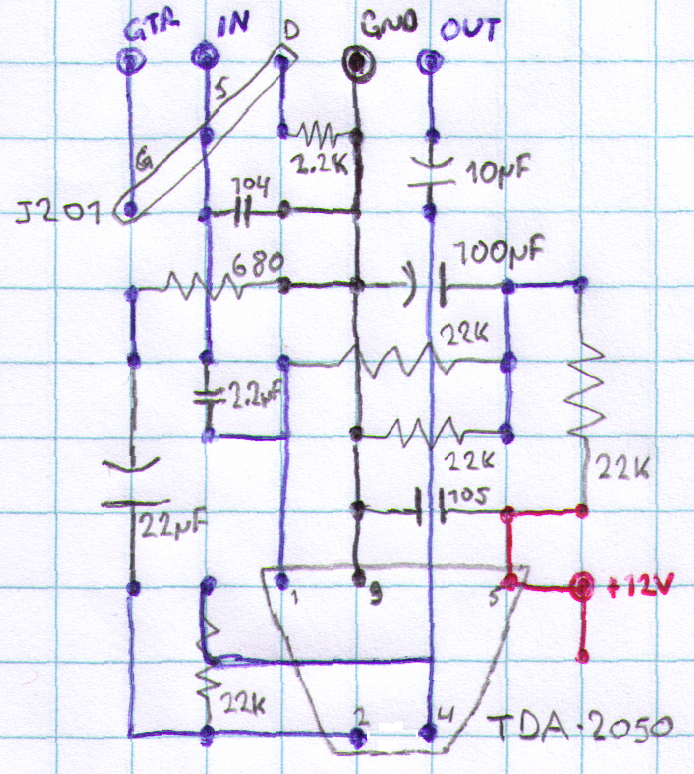 GTR IN D GND OUT
S
G
2.2K
10µF
J201
104
680
100µF
22K
2.2µF
22K
22K
105
22µF
1 3 5
+12V
22K
2 4
TDA-2050